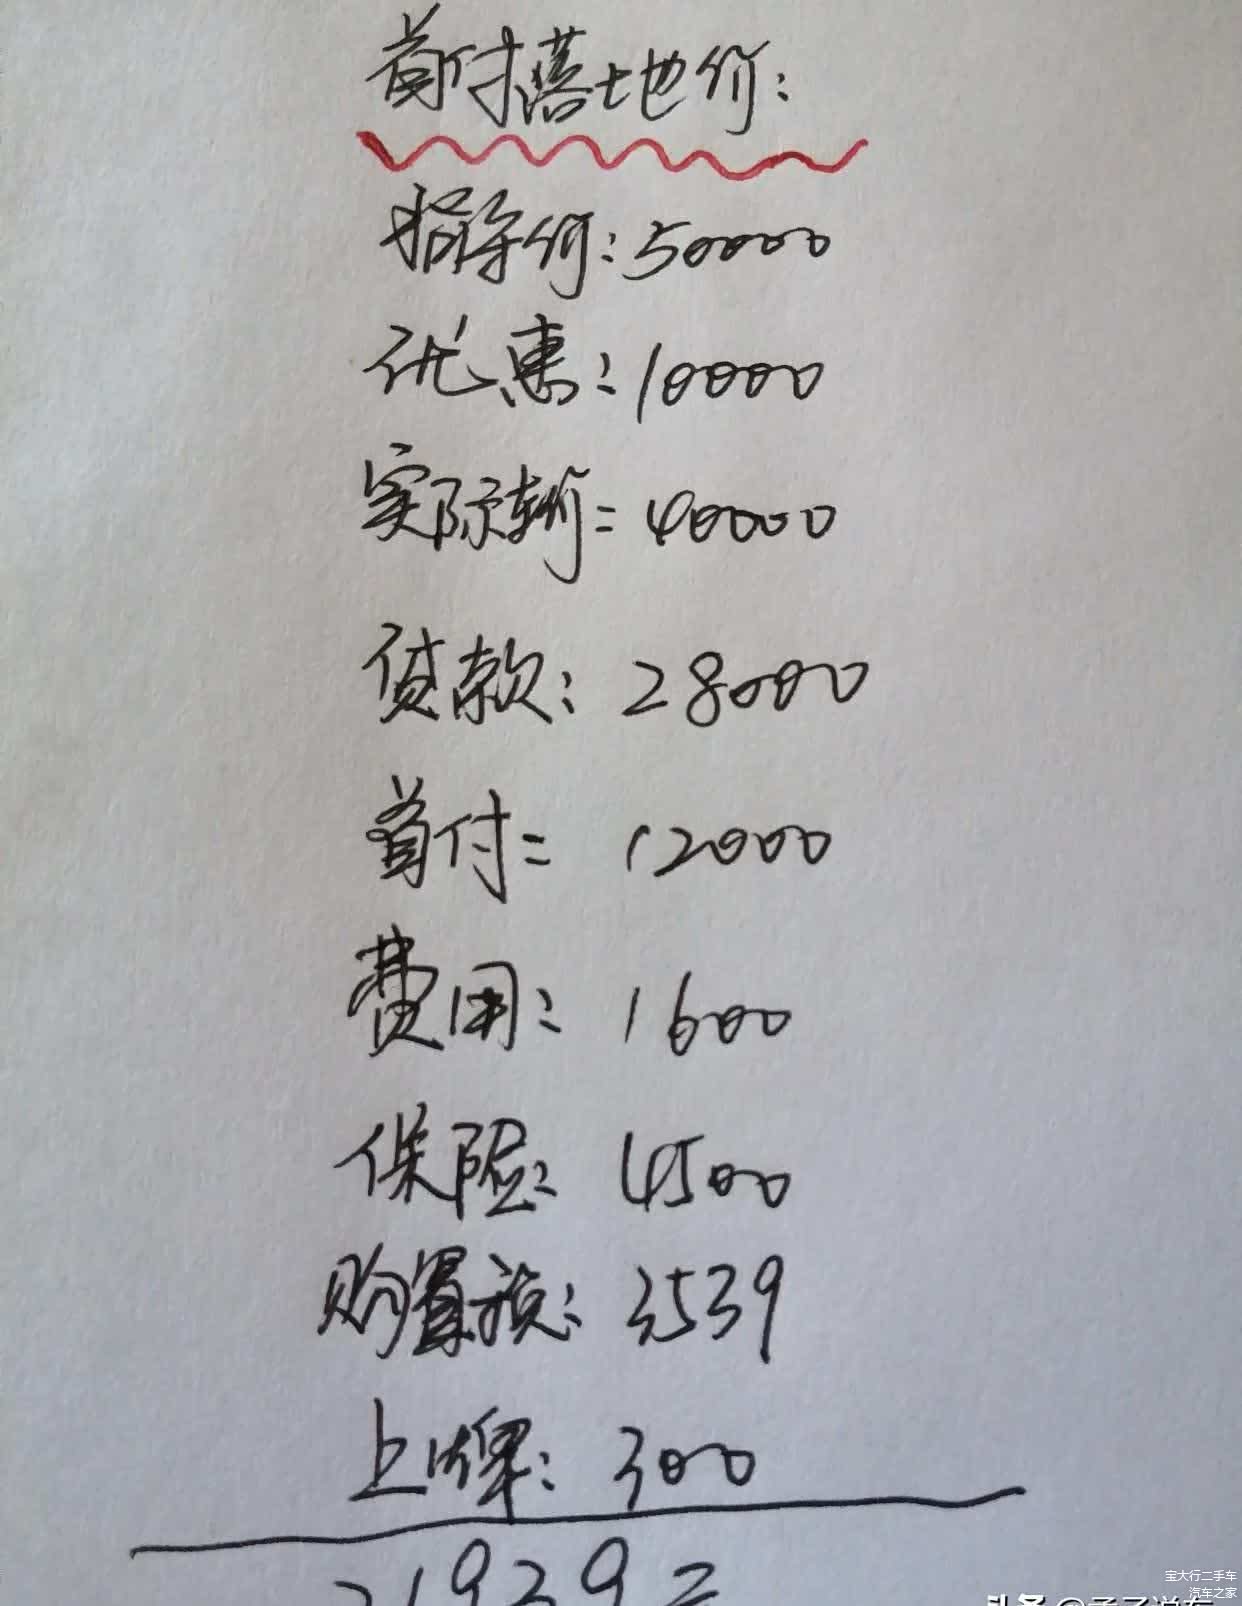 首付落地价:
指导价:50000
优惠:10000
实际车价=40000
贷款:28000
首付=12000
费用:1600
保险:4500
购置税:3539
上牌:300
21939=
宝大行二手车
汽车之家